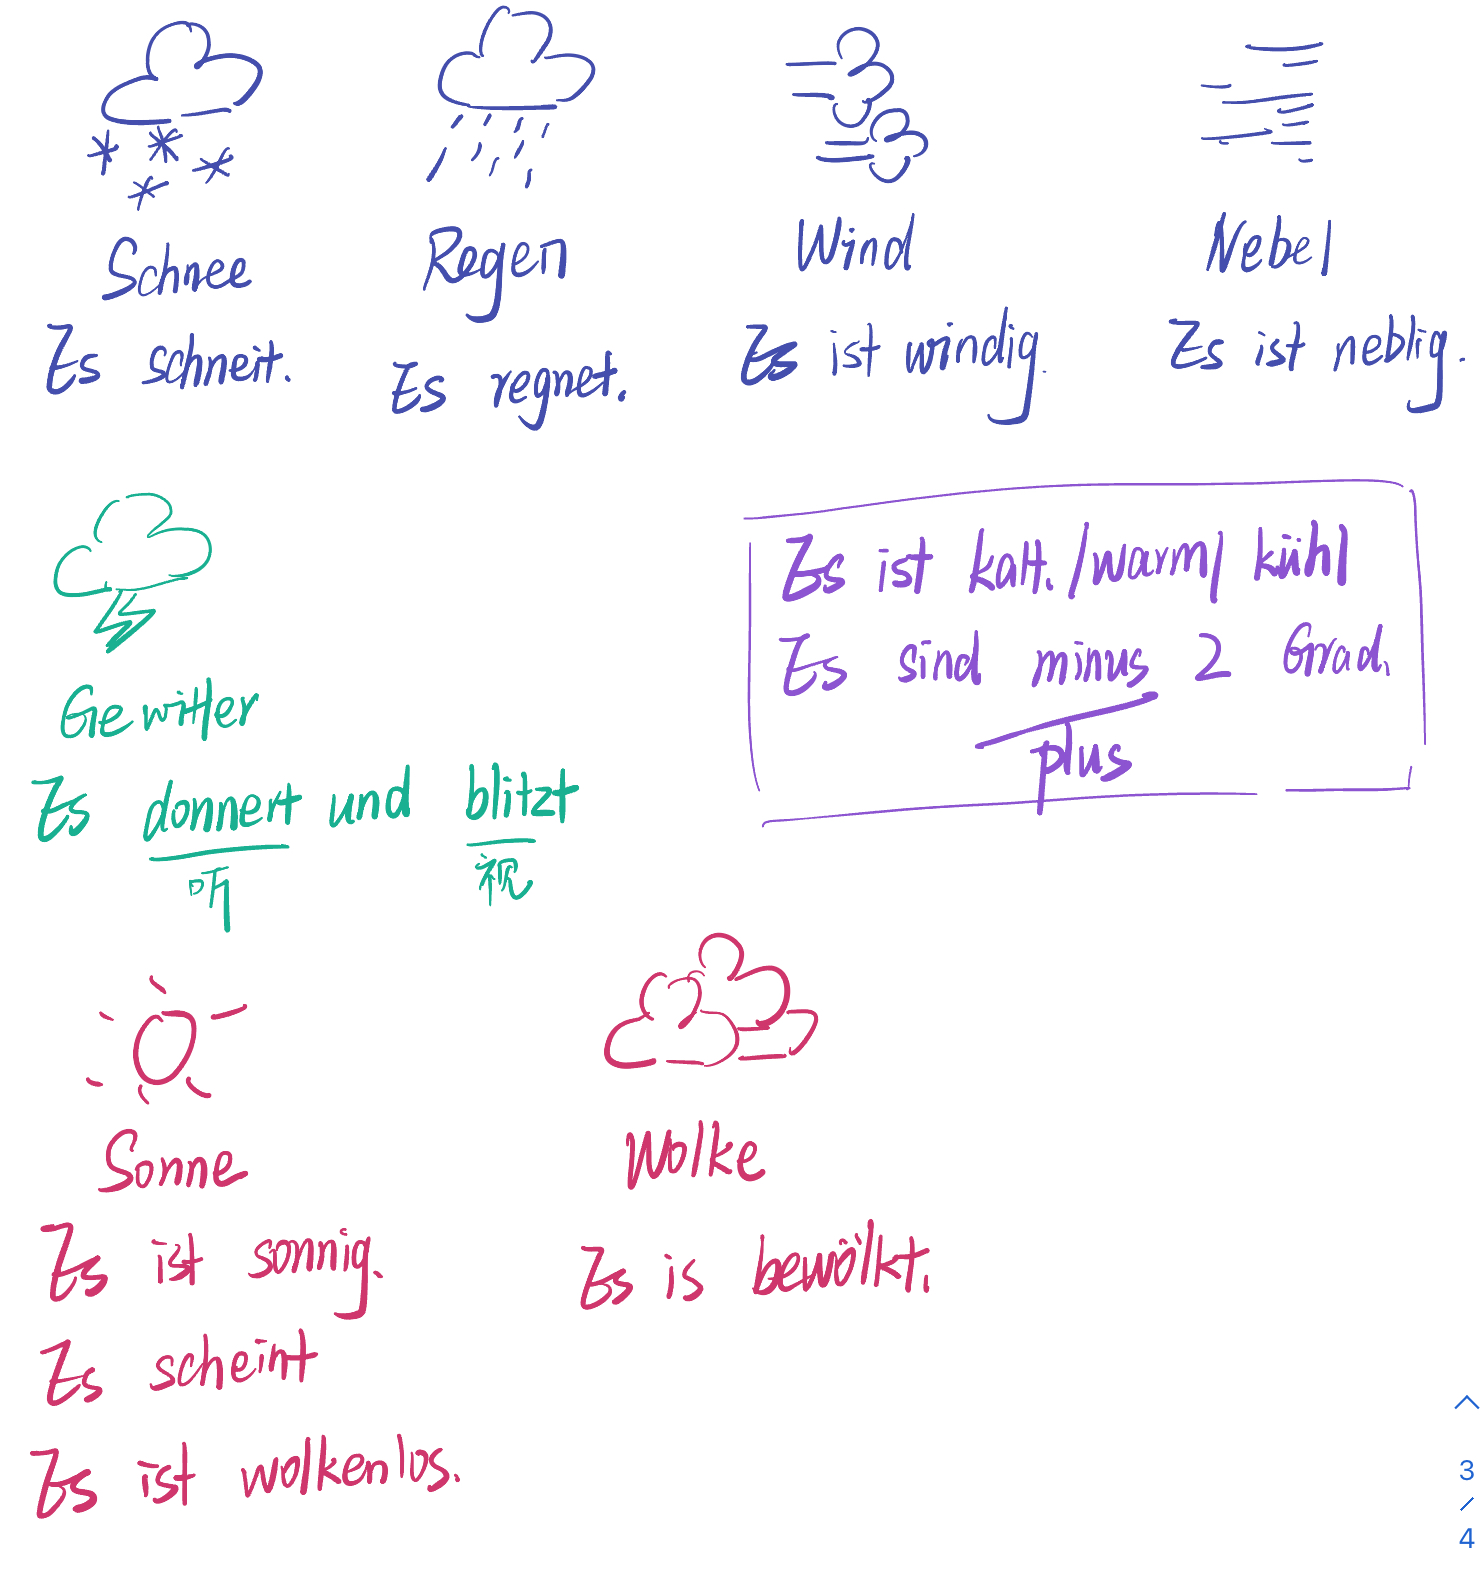 Schnee
Es schneit.
Regen
Es regnet.
Wind
Es ist windig.
Nebel
Es ist neblig.
Gewitter
Es donnert und blitzt
听 视
Es ist kalt./warm/ kühl
Es sind minus 2 Grad.
plus
Sonne
Es ist sonnig.
Es scheint
Es ist wolkenlos.
Wolke
Es is bewölkt.
3
/
4